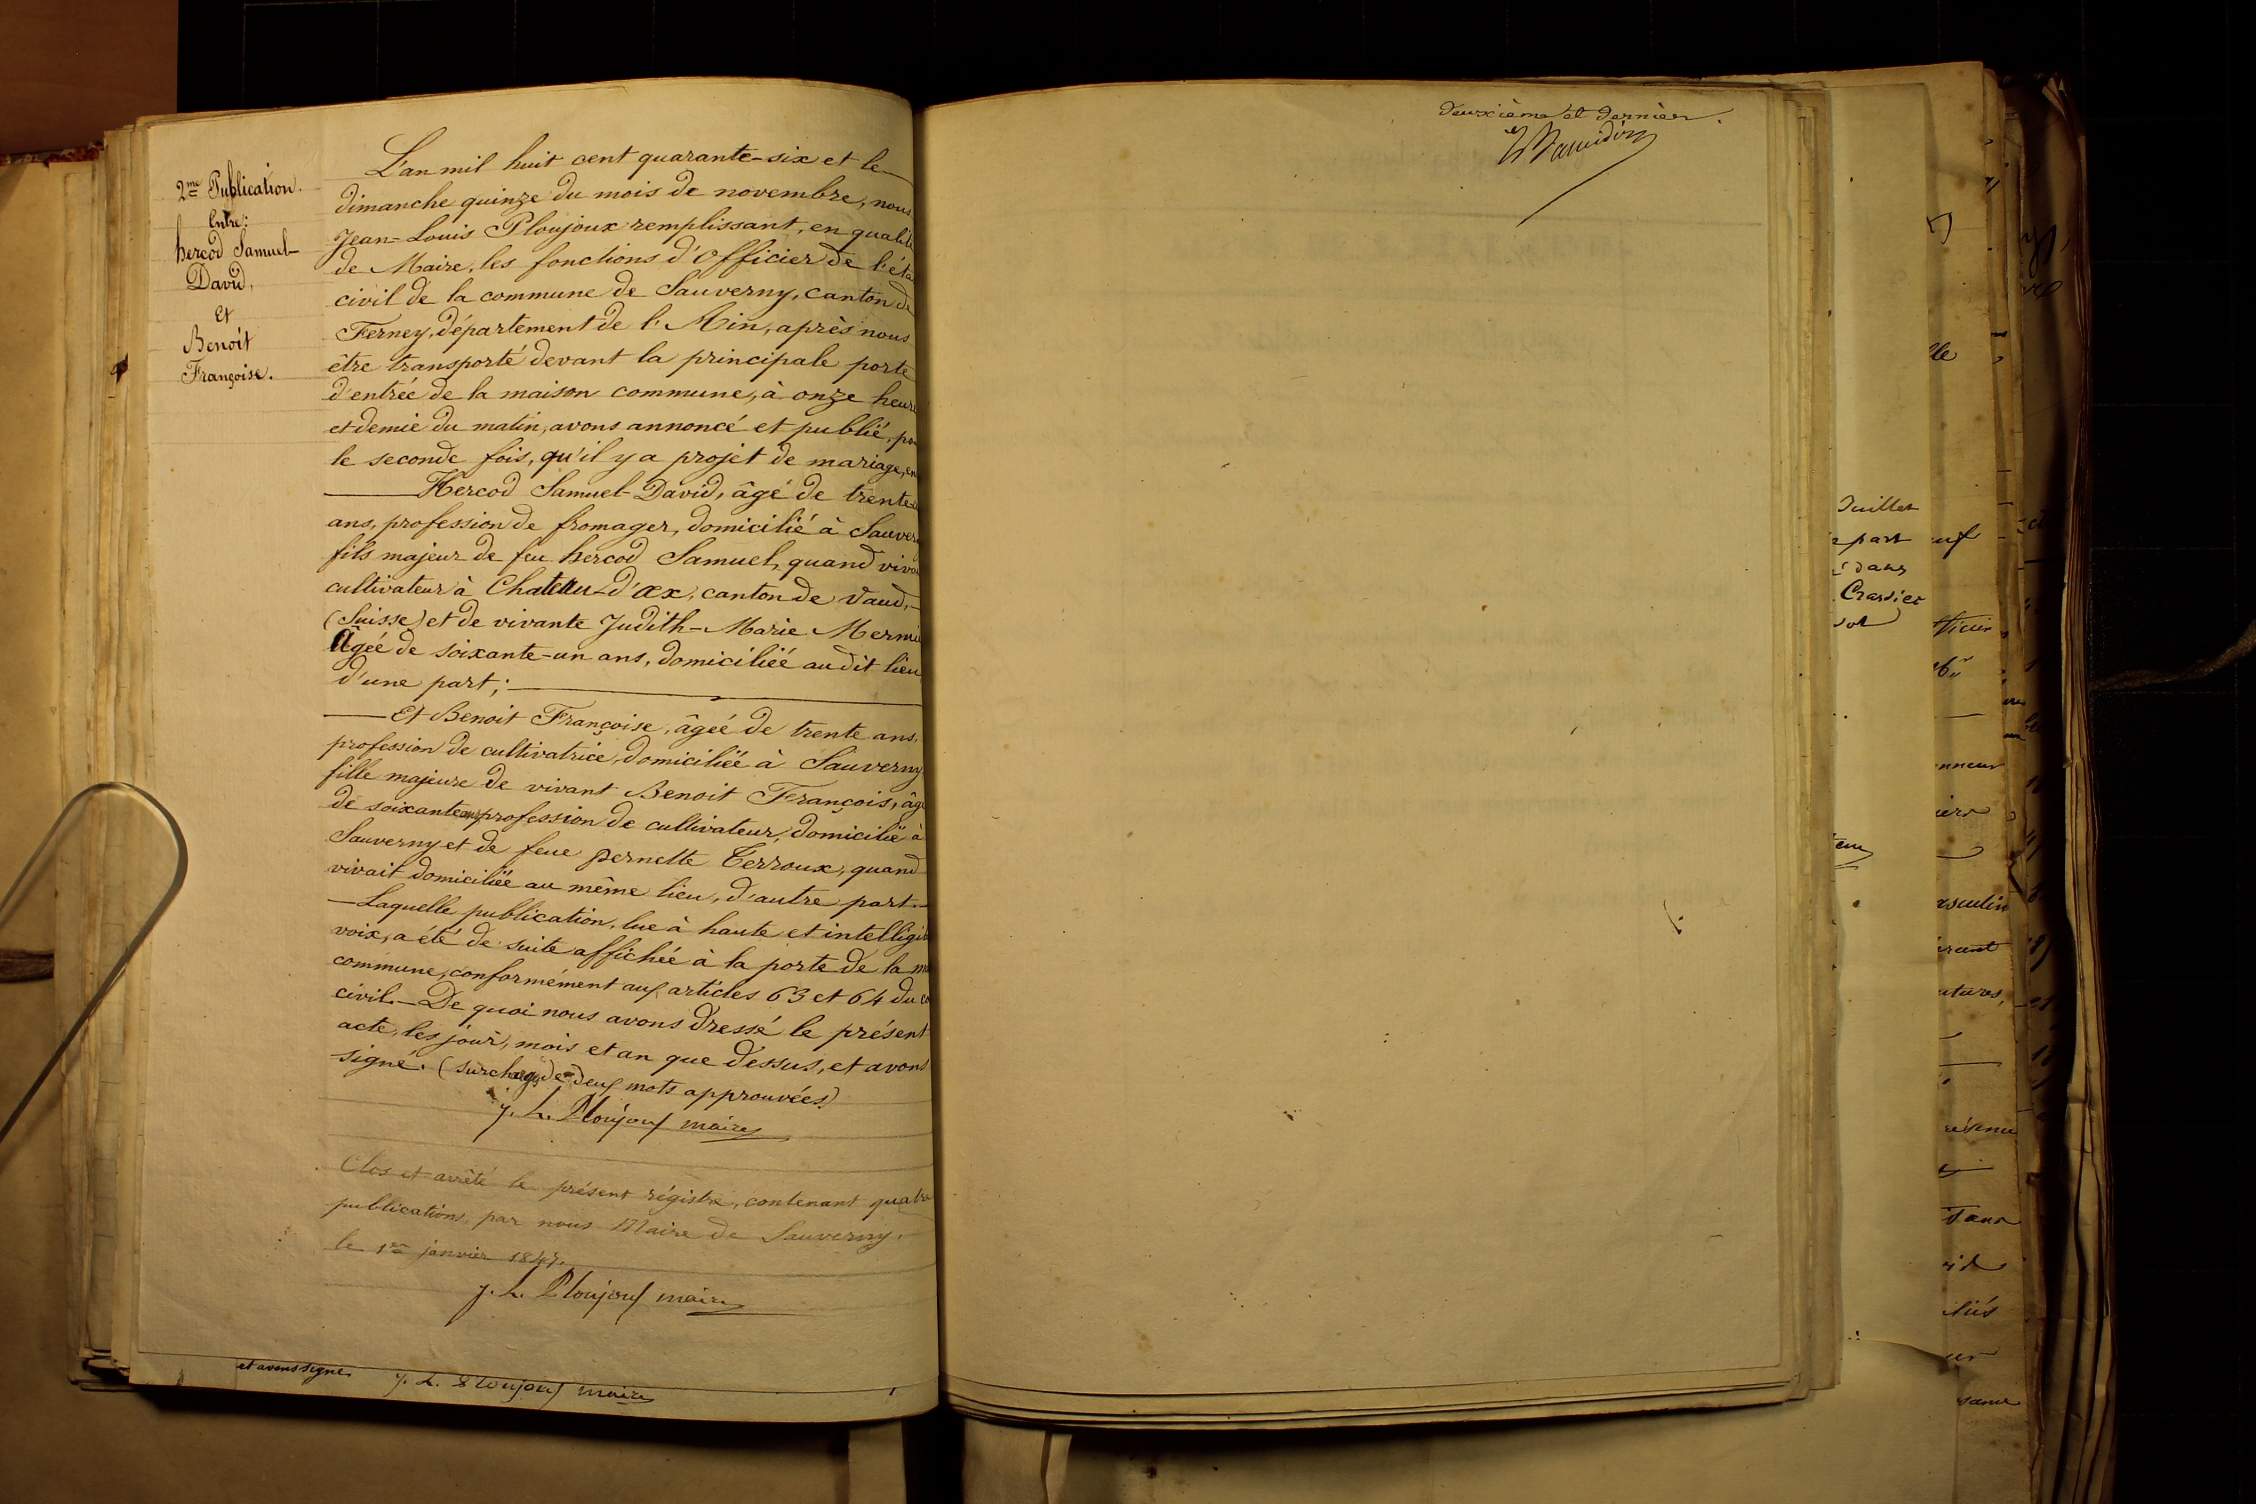 2me Publication.
Entre:
hercod Samuel-
David,
Et
Benoit
Françoise.
L'an mil huit cent quarante-six et le
dimanche quinze du mois de novembre, nous
Jean-Louis Ploujoux remplissant, en qualité
de Maire, les fonctions d'Officier de l'éta
civil de la commune de Sauverny, canton de
Ferney, département de l'Ain, après nous
être transporté devant la principale porte
d'entrée de la maison commune, à onze heure
et demie du matin, avons annoncé et publié, po
le seconde fois, qu'il y a projet de mariage, en
Hercod Samuel-David, âgé de trente-
ans, profession de fromager, domicilié à Sauver
fils majeur de feu hercod Samuel, quand viva
cultivateur à Chateau-d'œx, canton de Vaud,
(Suisse) et de vivante Judith-Marie Mermi
Agée de soixante-un ans, domiciliée au dit lieu
d'une part;
Et Benoit Françoise, âgée de trente ans,
profession de cultivatrice, domiciliée à Sauverny
fille majeure de vivant Benoit François, âgé
de soixante ans, profession de cultivateur, domicilié à
Sauverny et de feue pernette Terroux, quand
vivait domiciliée au même lieu, d'autre part.
Laquelle publication, lue à haute et intelligib
voix, a été de suite affichée à la porte de la m
commune, conformément aux articles 63 et 64 du co
civil. De quoi nous avons dressé le présent
acte, les jour, mois et an que dessus, et avons
signé. (surcharge de deux mots approuvées)
J. L. Ploujoux maire
Clos et arrêté le présent régistre, contenant quatre
publications, par nous Maire de Sauverny,
le 1er janvier 1847.
J. L. Ploujoux maire
et avons signé J. L. Ploujoux maire
deuxième et dernier.
Juillet
part
dans
Crassier